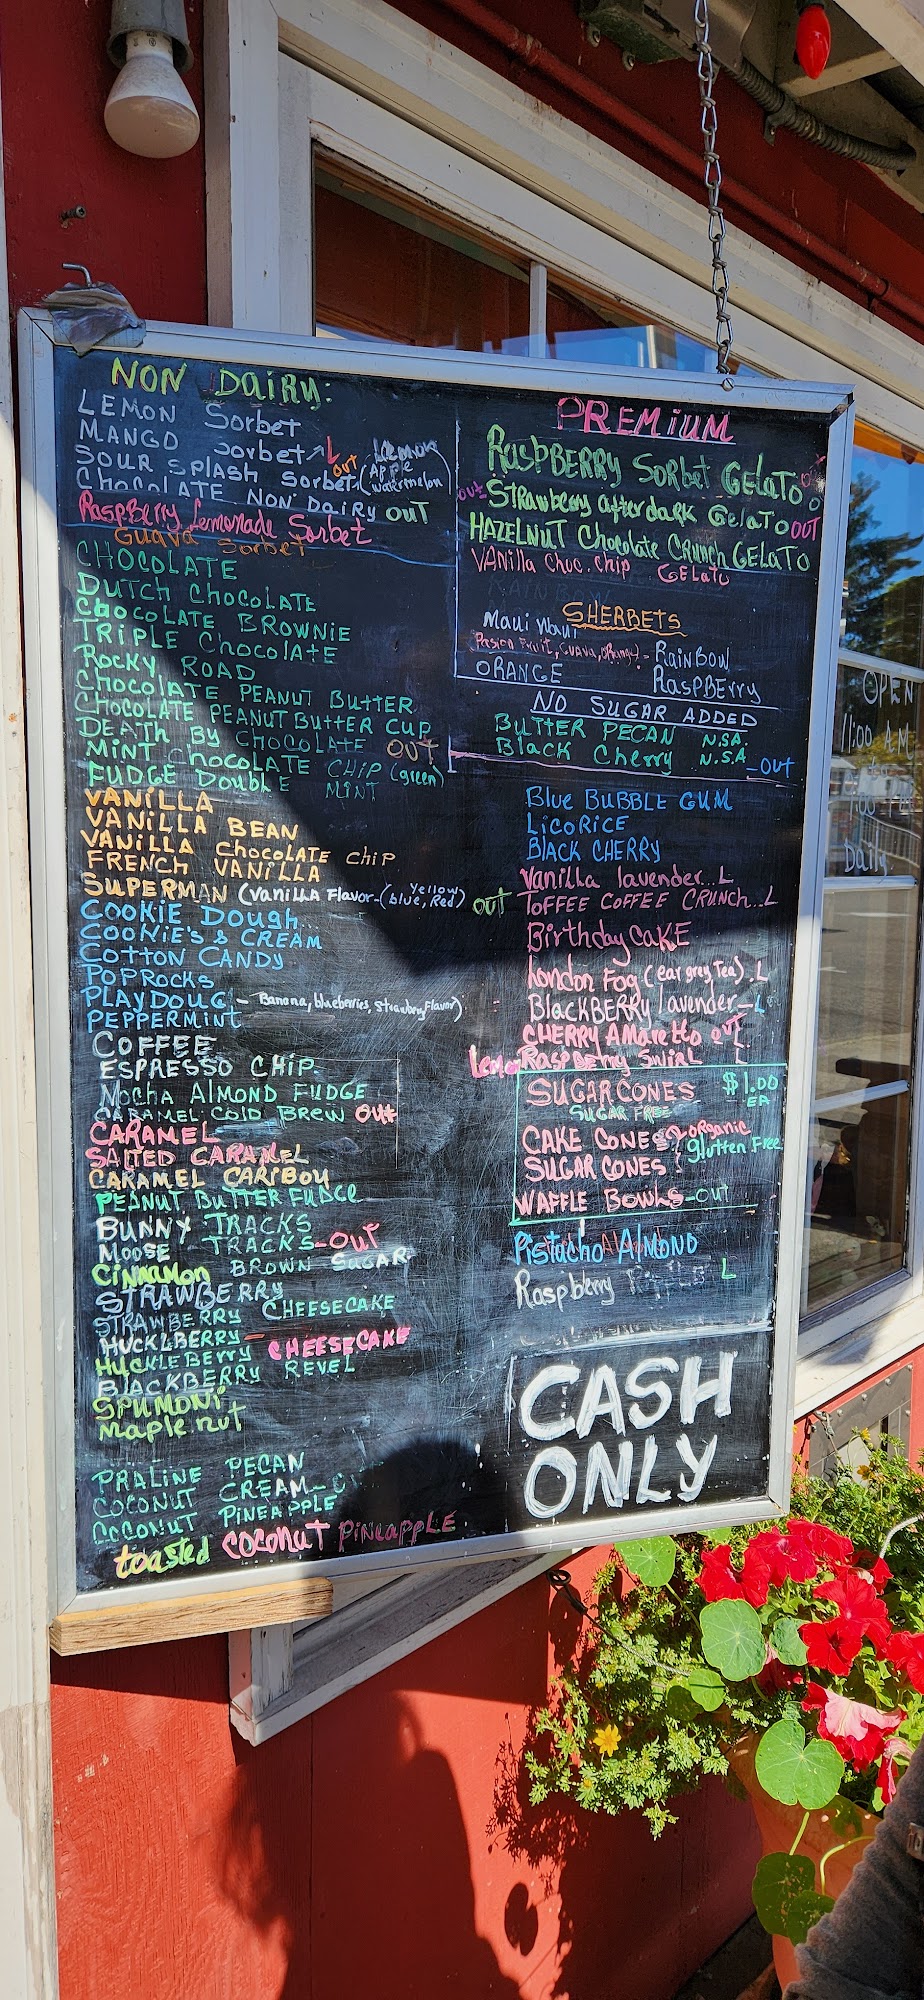 NON DAiRy:
LEMON Sorbet
MANGO Sorbet L
SOUR SPLASH Sorbet out (Lemon Apple watermelon)
CHOCOLATE NON DAiRy OUT
RaspBerry Lemonade Sorbet
Guava Sorbet
CHOCOLATE
DUTCH CHOCOLATE
CHOCOLATE BROWNiE
TRiPLE CHOCOLATE
ROCKY ROAD
CHOCOLATE PEANUT BUTTER
CHOCOLATE PEANUT BUTTER CUP
DEATH BY CHOCOLATE OUT
MiNT CHOCOLATE CHiP (green)
FUDGE DOUBLE MiNT
VANiLLA
VANiLLA BEAN
VANiLLA CHOCOLATE CHiP
FRENCH VANiLLA
SUPERMAN (Vanilla Flavor-(blue, Yellow Red) OUT
COOKiE DOUGH
COOKiE'S & CREAM
COTTON CANDY
POPROCKS
PLAYDOUG - Banana, blueberries, Strawberry Flavor)
PEPPERMiNT
COFFEE
ESPRESSO CHiP
Mocha ALMOND FUDGE
CARAMEL COLD BREW OUT
CARAMEL
SALTED CARAMEL
CARAMEL CARiBOU
PEANUT BUTTER FUDGE
BUNNY TRACKS
MOOSE TRACKS-OUT
CiNNAMON BROWN SUGAR
STRAWBERRY
STRAWBERRY CHEESECAKE
HUCKLBERRY
HUCKLEBERRY CHEESECAKE
BLACKBERRY REVEL
SPUMONi
Maple nut
PRALiNE PECAN
COCONUT CREAM
COCONUT PiNEAPPLE
toasted COCONUT PiNEAPPLE
PREMiUM
RASPBERRY Sorbet GELATO
out Strawberry afterdark GelaTo OUT
HAZELNUT Chocolate Crunch GELATO
VANilla Choc. chip GELATO
SHERBETS
Maui Waui
Pasion Fruit, Guava, ORange - RaiNBOW
ORANGE RASPBERRY
NO SUGAR ADDED
BUTTER PECAN N.S.A.
Black Cherry N.S.A -OUT
Blue BUBBLE GUM
LiCORiCE
BLACK CHERRY
Vanilla lavender..L
TOFFEE COFFEE CRUNCH..L
BirthdayCAKE
London Fog (ear grey Tea).L
BlaCKBERRY lavender-L
CHERRY AMaretto OUT
Lemon RASPBERRY SwiRL L
SUGAR CONES $1.00 EA
SUGAR FREE
CAKE CONES organic
SUGAR CONES glutten Free
WAFFLE BOWLS-OUT
Pistacho AlMOND
Raspberry L
CASH
ONLY
OPEN
11:00 A.M.
Daily